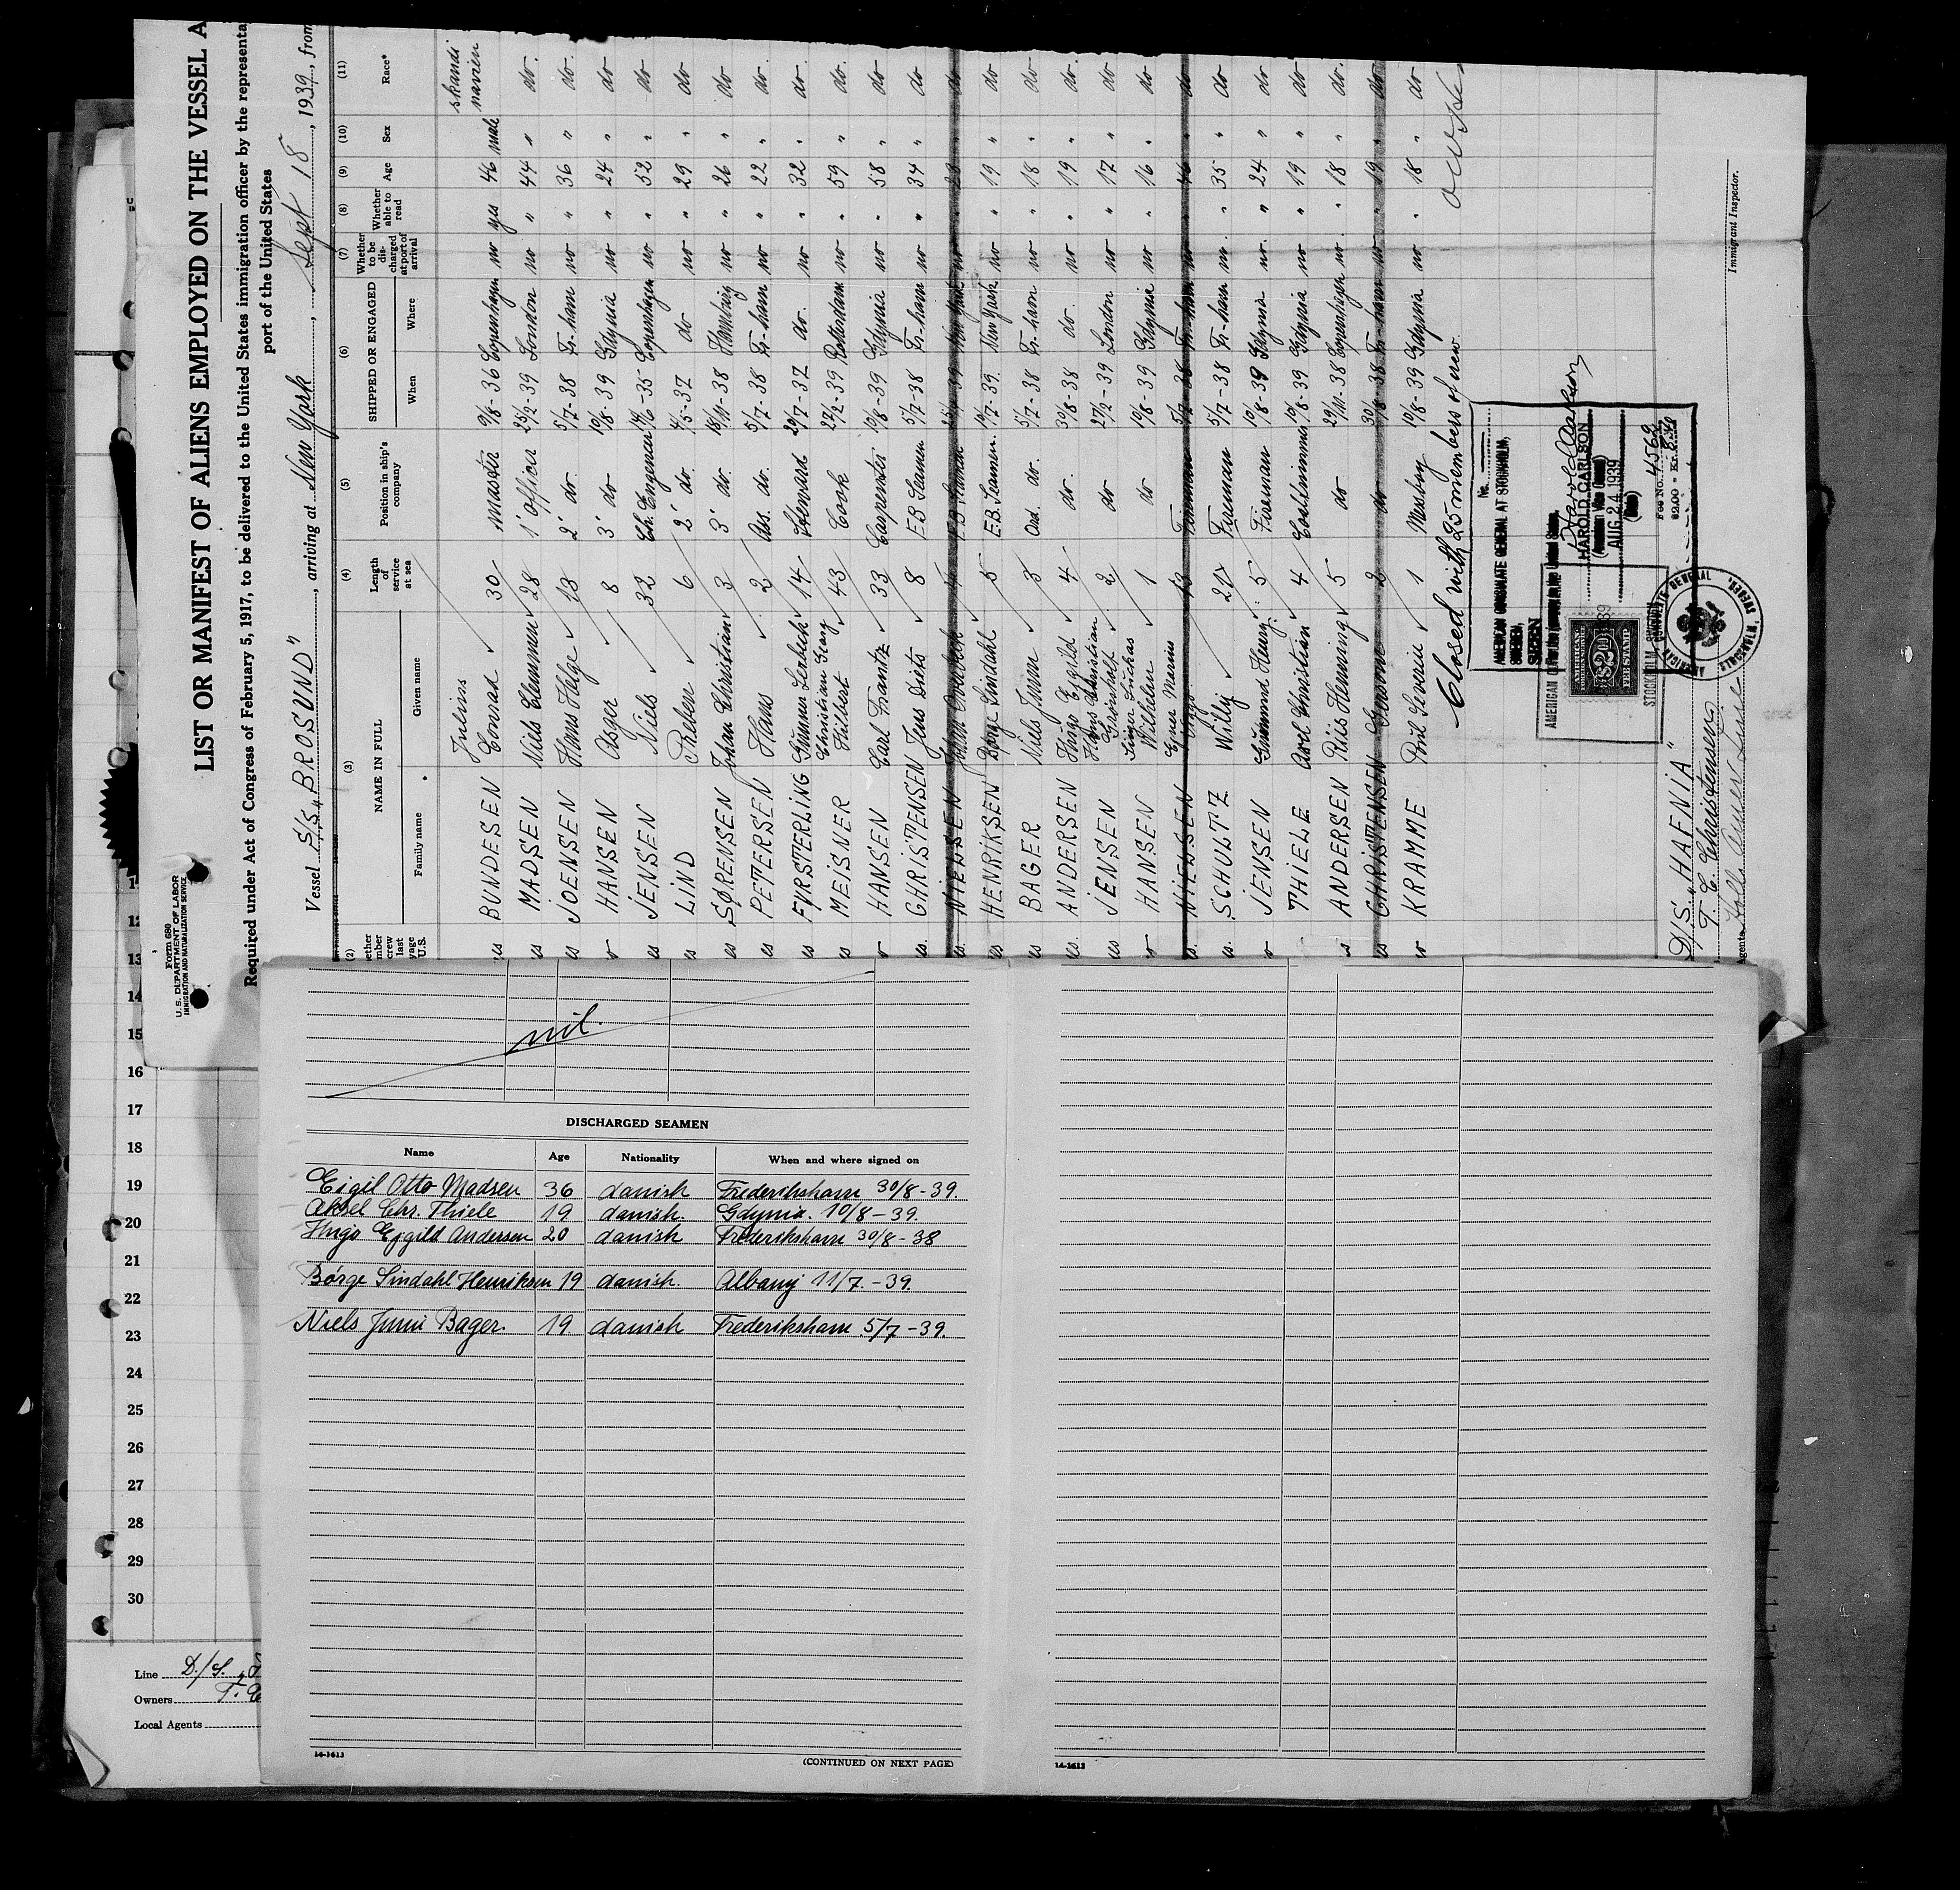 Form 680
U. S. DEPARTMENT OF LABOR
IMMIGRATION AND NATURALIZATION SERVICE
LIST OR MANIFEST OF ALIENS EMPLOYED ON THE VESSEL A
Required under Act of Congress of February 5, 1917, to be delivered to the United States immigration officer by the representa
port of the United States
Vessel S/S „BROSUND", arriving at New York, Sept 18, 1939, from
(2) (3) (4) (5) (6) (7) (8) (9) (10) (11)
NAME IN FULL Length of service at sea Position in ship's company SHIPPED OR ENGAGED Whether to be discharged at port of arrival Whether able to read Age Sex Race*
Family name Given name When Where
BUNDESEN Julius Conrad 30 master 9/8-36 Copenhagen no yes 46 male skandinavien
MADSEN Niels Clemmen 28 1' officer 25/2-39 London no " 44 " do.
JOENSEN Hans Helge 13 2' do. 5/7-38 Fr-havn no " 36 " do.
HANSEN Asger 8 3' do 10/8-39 Gdynia no " 24 " do
JENSEN Niels 32 Ch. Engeneer 14/6-35 Copenhagen no " 52 " do
LIND Preben 6 2' do. 4/5-37 do no " 29 " do
SØRENSEN Johan Christian 3 3' do. 18/11-38 Hamburg no " 26 " do
PETERSEN Hans 2 Ass. do. 5/7-38 Fr-havn no " 22 " do.
FYRSTERLING Gunner 14 Steward 29/7-37 do. no " 32 " do.
MEISNER Christian Georg Hilbert 43 Cook 27/2-39 Rotterdam no " 59 " do.
HANSEN Carl Frantz 33 Carpenter 10/8-39 Gdynia no " 58 " do
CHRISTENSEN Jens 8 E.B Seamen 5/7-38 Fr.havn no " 34 " do
NIELSEN Johan
HENRIKSEN Børge Lindahl 5 E.B. Seamen. New York no " 19 " do
BAGER Niels Junii 3 Ord. do. 5/7-38 Fr-havn no " 18 " do.
ANDERSEN Hugo Ejgild 4 do. 30/8-38 do. no " 19 " do.
JENSEN Hans Christian 2 do 27/2-39 London no " 17 " do
HANSEN Wilhelm 1 do 10/8-39 Gdynia no " 16 " do.
NIELSEN Ejner Marius
SCHULTZ Willy 20 Fireman 5/7-38 Fr-havn no. " 35 " do.
JENSEN Gudmund Henry 5 Fireman 10/8-39 Gdynia no. " 24 " do
THIELE Axel Christian 4 Coaltrimmer 10/8-39 Gdynia no " 19 " do
ANDERSEN Riis Henning 5 do 29/11-38 Copenhagen no. " 18 " do.
CHRISTENSEN 2 do 30/8-38 Fr-havn no 19 do
KRAMME Poul Severin 1 Messboy 10/8-39 Gdynia no " 18 " do
Closed with 25 members of crew.
No.
AMERICAN CONSULATE GENERAL AT STOCKHOLM,
SWEDEN,
SEEN
Harold Carlson
HAROLD CARLSON
(American Vice Consul)
AUG 24 1939
(Date)
Fee No. 4562
$2.00 =
AMERICAN
FOREIGN SERVICE
$2
FEE STAMP
STOCKHOLM, SWEDEN
D/S. „HAFNIA"
T. C. Christensen
Immigrant Inspector.
nil.
DISCHARGED SEAMEN
Name Age Nationality When and where signed on
Eigil Otto Madsen 36 danish Frederikshavn 30/8-39.
Aksel Chr. Thiele 19 danish. Gdynia. 10/8-39.
Hugo Ejgild Andersen 20 danish Frederikshavn 30/8-38
Børge Lindahl Henriksen 19 danish. Albany 11/7.-39.
Niels Junii Bager. 19 danish Frederikshavn 5/7-39.
14-1613
(CONTINUED ON NEXT PAGE)
14-1613
12
13
14
15
16
17
18
19
20
21
22
23
24
25
26
27
28
29
30
Line D./S.
Owners T.
Local Agents